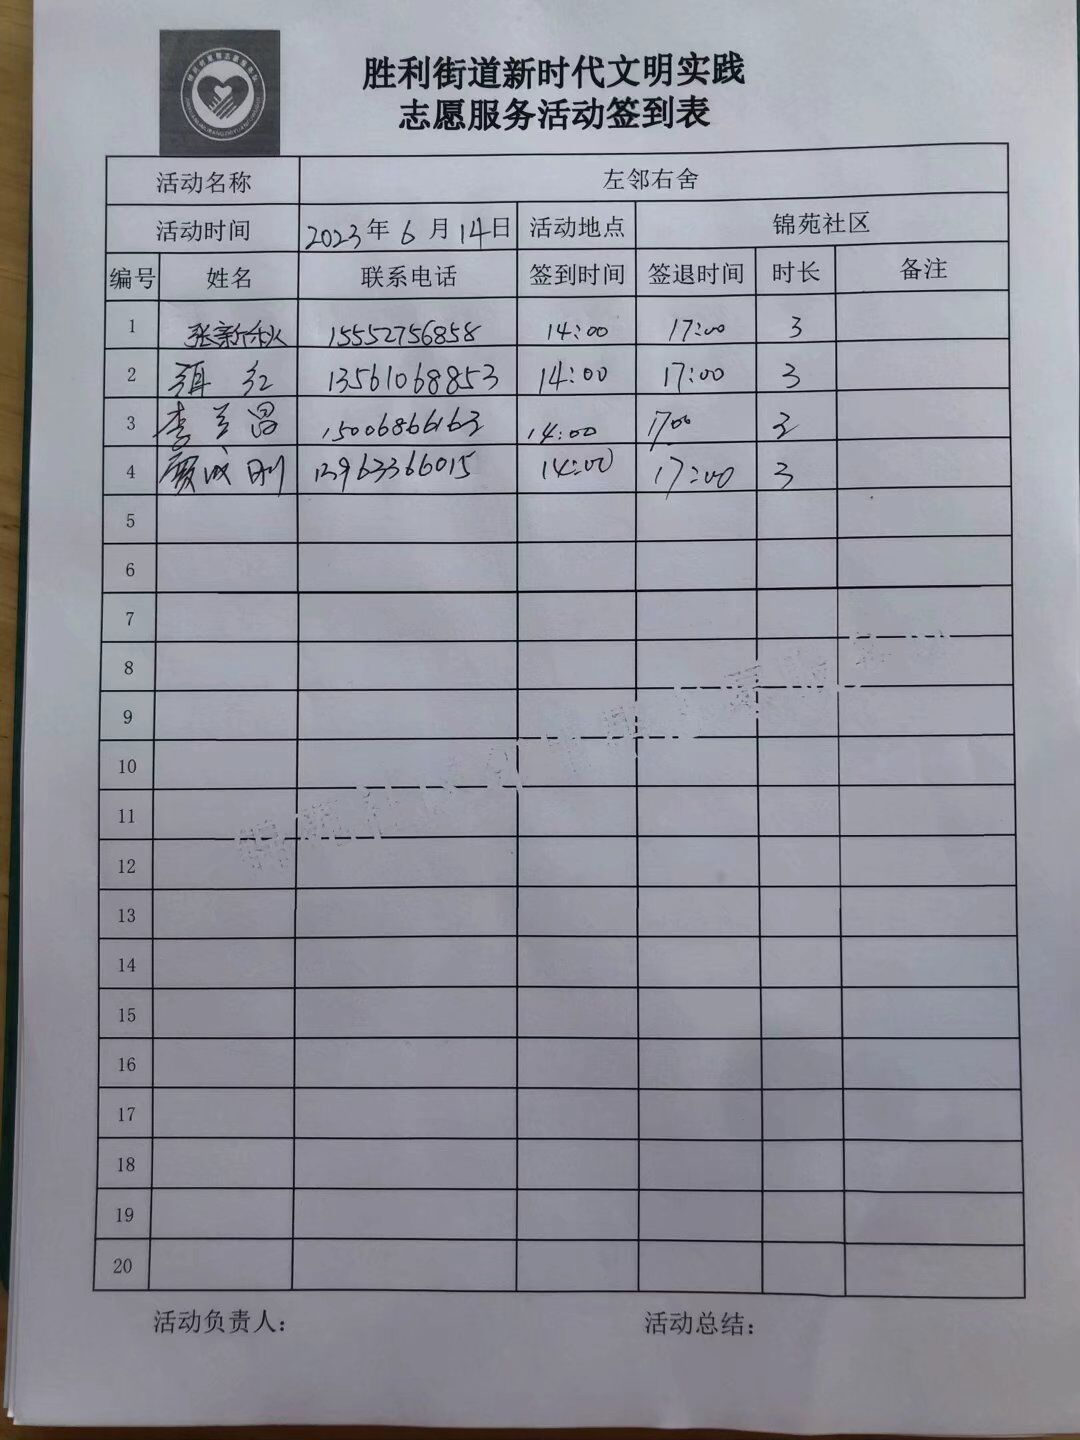 胜利街道新时代文明实践
志愿服务活动签到表
活动名称 左邻右舍
活动时间 2023年6月14日 活动地点 锦苑社区
编号 姓名 联系电话 签到时间 签退时间 时长 备注
1 张新秋 15552756858 14:00 17:00 3
2 红 13561068853 14:00 17:00 3
3 李兰昌 15006866163 14:00 1700 3
4 成刚 13963366015 14:00 17:00 3
5
6
7
8
9
10
11
12
13
14
15
16
17
18
19
20
活动负责人: 活动总结: